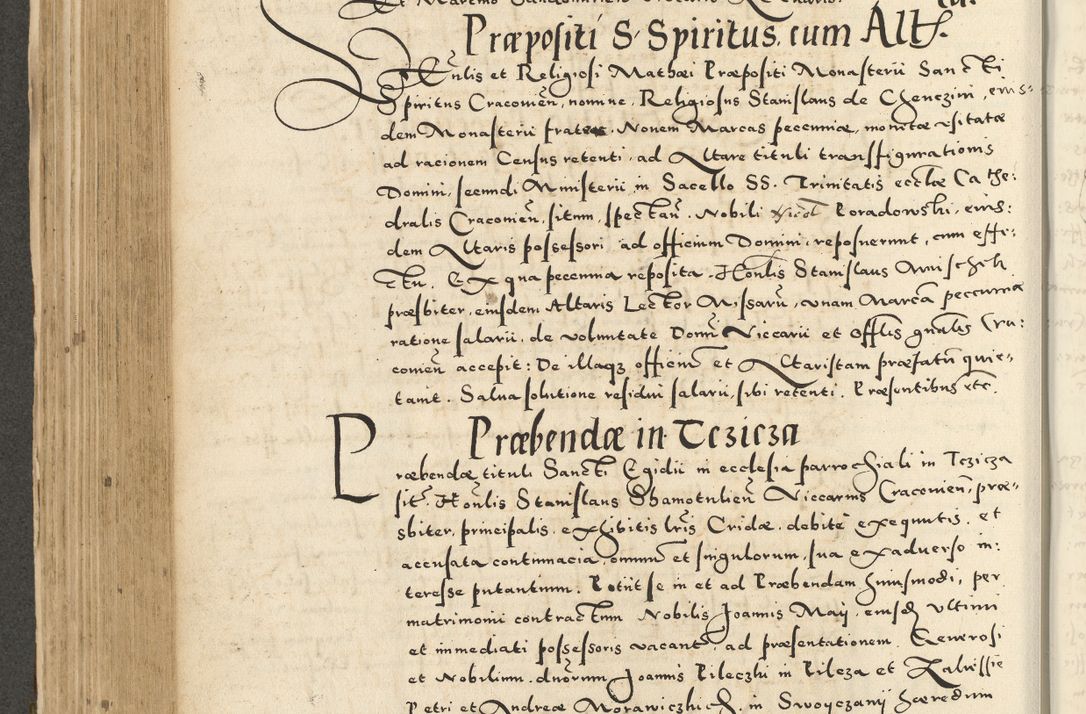 Præpositi S. Spiritus, cum Alt.
et Religiosi Mathæi Præpositi Monasterii Sancti
Spiritus Cracovien̄, nomine, Religiosus Stanislaus de Chenczini, eius-
dem Monasterii frater. Nonem Marcas pecuniæ, monetæ usitatæ
ad racionem Census retenti, ad Altare tituli transffigurationis
Domini, secundi Ministerii in Sacello SS. Trinitatis eccłæ Cathe:
dralis Cracovien̄, situm, spectan̄. Nobili Nicol Poradowski, eius:
dem Altaris possessori, ad officium Domini, reposuerunt, cum effe:
ctu. Ex qua pecunia reposita, Honlis Stanislaus
præsbiter, eiusdem Altaris Lector Missarū, unam Marcā pecuniæ
ratione salarii, de voluntate Domī Viccarii et Offlis gnalis Cra:
covien̄ accepit: De illaqz officiū et Altaristam præfatū quie-
tavit. Salva solutione residui salarii, sibi retenti. Præsentibus etc.
Præbendæ in Tczicza
Præbendæ tituli Sancti Egidii in ecclesia parrochiali in Tczicza
sit. Honlis Stanislaus Shamotulien̄ Viccarius Cracovien̄, præ-
sbiter, principalis, exhibitis lris Cridæ, debite exequutis, et
accusata contumacia, omniū et singulorum, sua ex adverso in:
teresse putantium. Petiit se in et ad Præbendam huiusmodi, per
matrimonii contractum Nobilis Joannis May, eiusd ultimi
et immediati possessoris vacan̄, ad præsentationem Generosi
et Nobilium duorum Joannis Pileczki in Pilcza et
Petri et Andreæ in Swoyczany hæredum